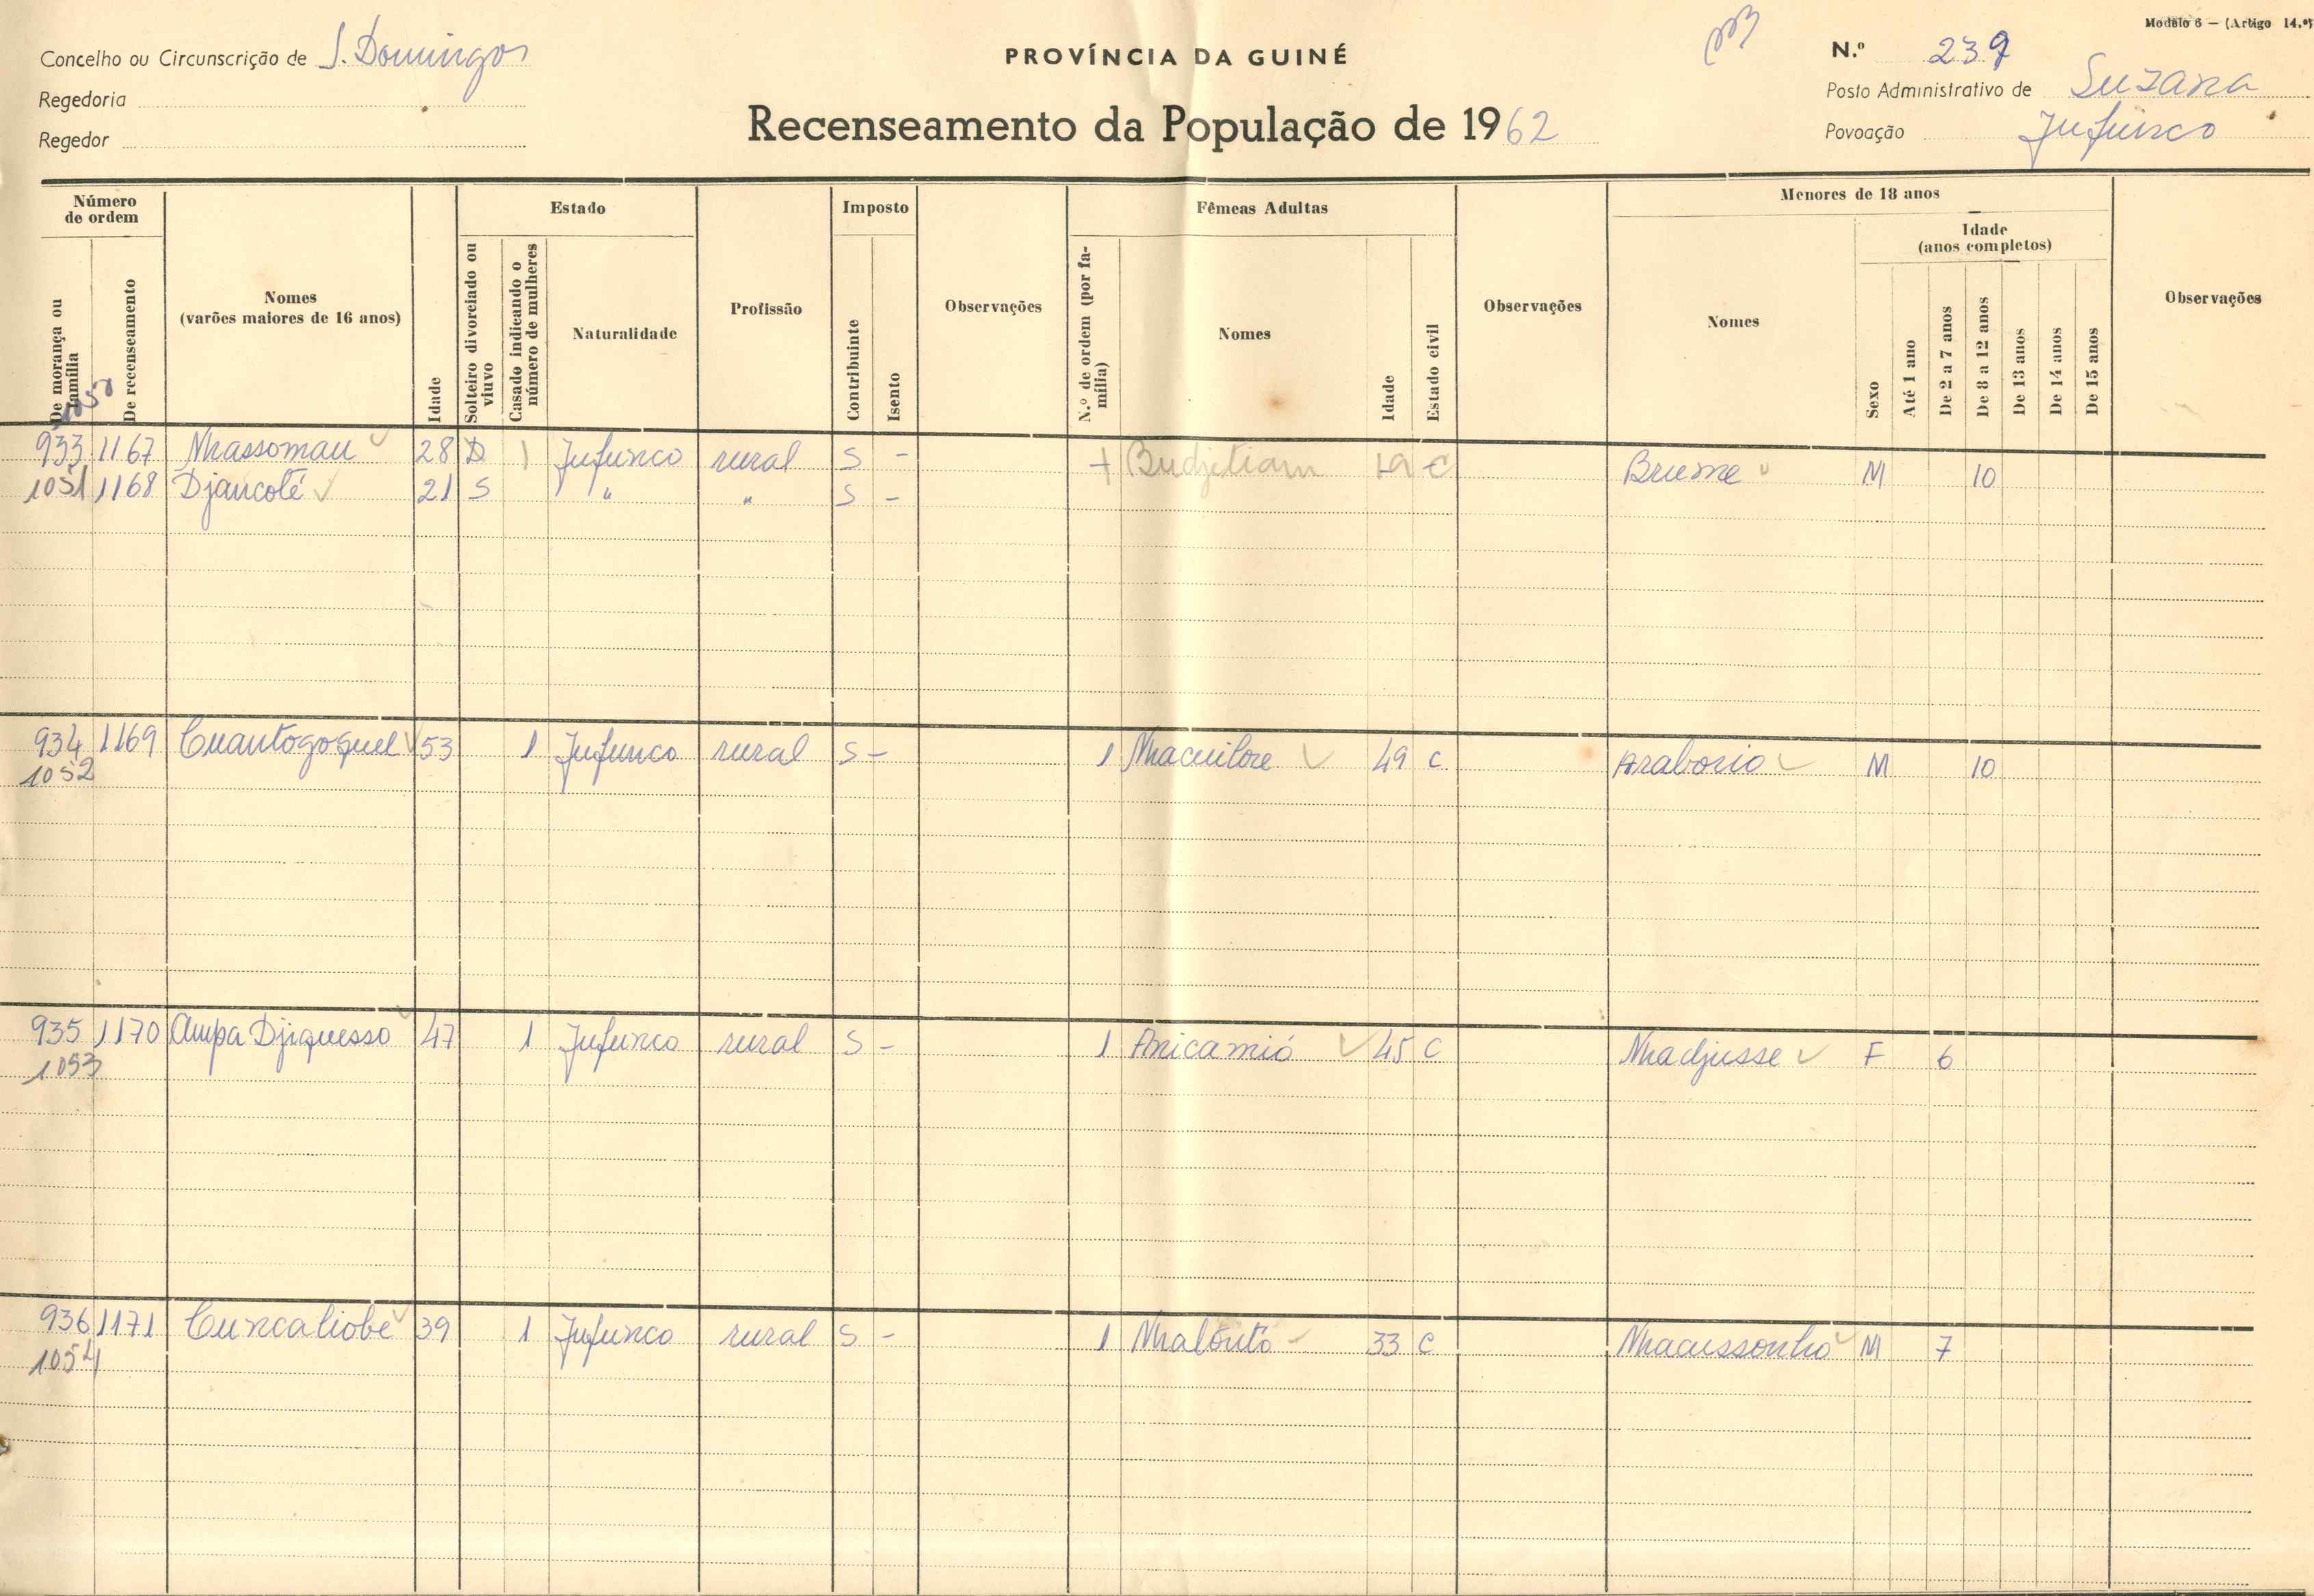 Modelo 6 — (Artigo 14.º)
Concelho ou Circunscrição de S. Domingos
PROVÍNCIA DA GUINÉ
N.º 239
Regedoria
Posto Administrativo de Suzana
Regedor
Recenseamento da População de 1962
Povoação Jufunco
Número de ordem
Estado
Imposto
Fêmeas Adultas
Menores de 18 anos
Idade (anos completos)
De morança ou família
De recenseamento
Nomes (varões maiores de 16 anos)
Idade
Solteiro divorciado ou viuvo
Casado indicando o número de mulheres
Naturalidade
Profissão
Contribuinte
Isento
Observações
N.º de ordem (por família)
Nomes
Idade
Estado civil
Observações
Nomes
Sexo
Até 1 ano
De 2 a 7 anos
De 8 a 12 anos
De 13 anos
De 14 anos
De 15 anos
Observações
1050
933 1167 Nhassomau 28 D 1 Jufunco rural S - Budjetiam 19 C Brume M 10
1051 1168 Djancolé 21 S " " S -
934 1169 Cuantogoquel 53 1 Jufunco rural S - 1 Nhacuilore 49 C Araborio M 10
1052
935 1170 Ampa Djiquesso 47 1 Jufunco rural S - 1 Anicamió 45 C Nhadjusse F 6
1053
936 1171 Cuncaliobé 39 1 Jufunco rural S - 1 Nhalonto 33 C Nhacussonho M 7
1054